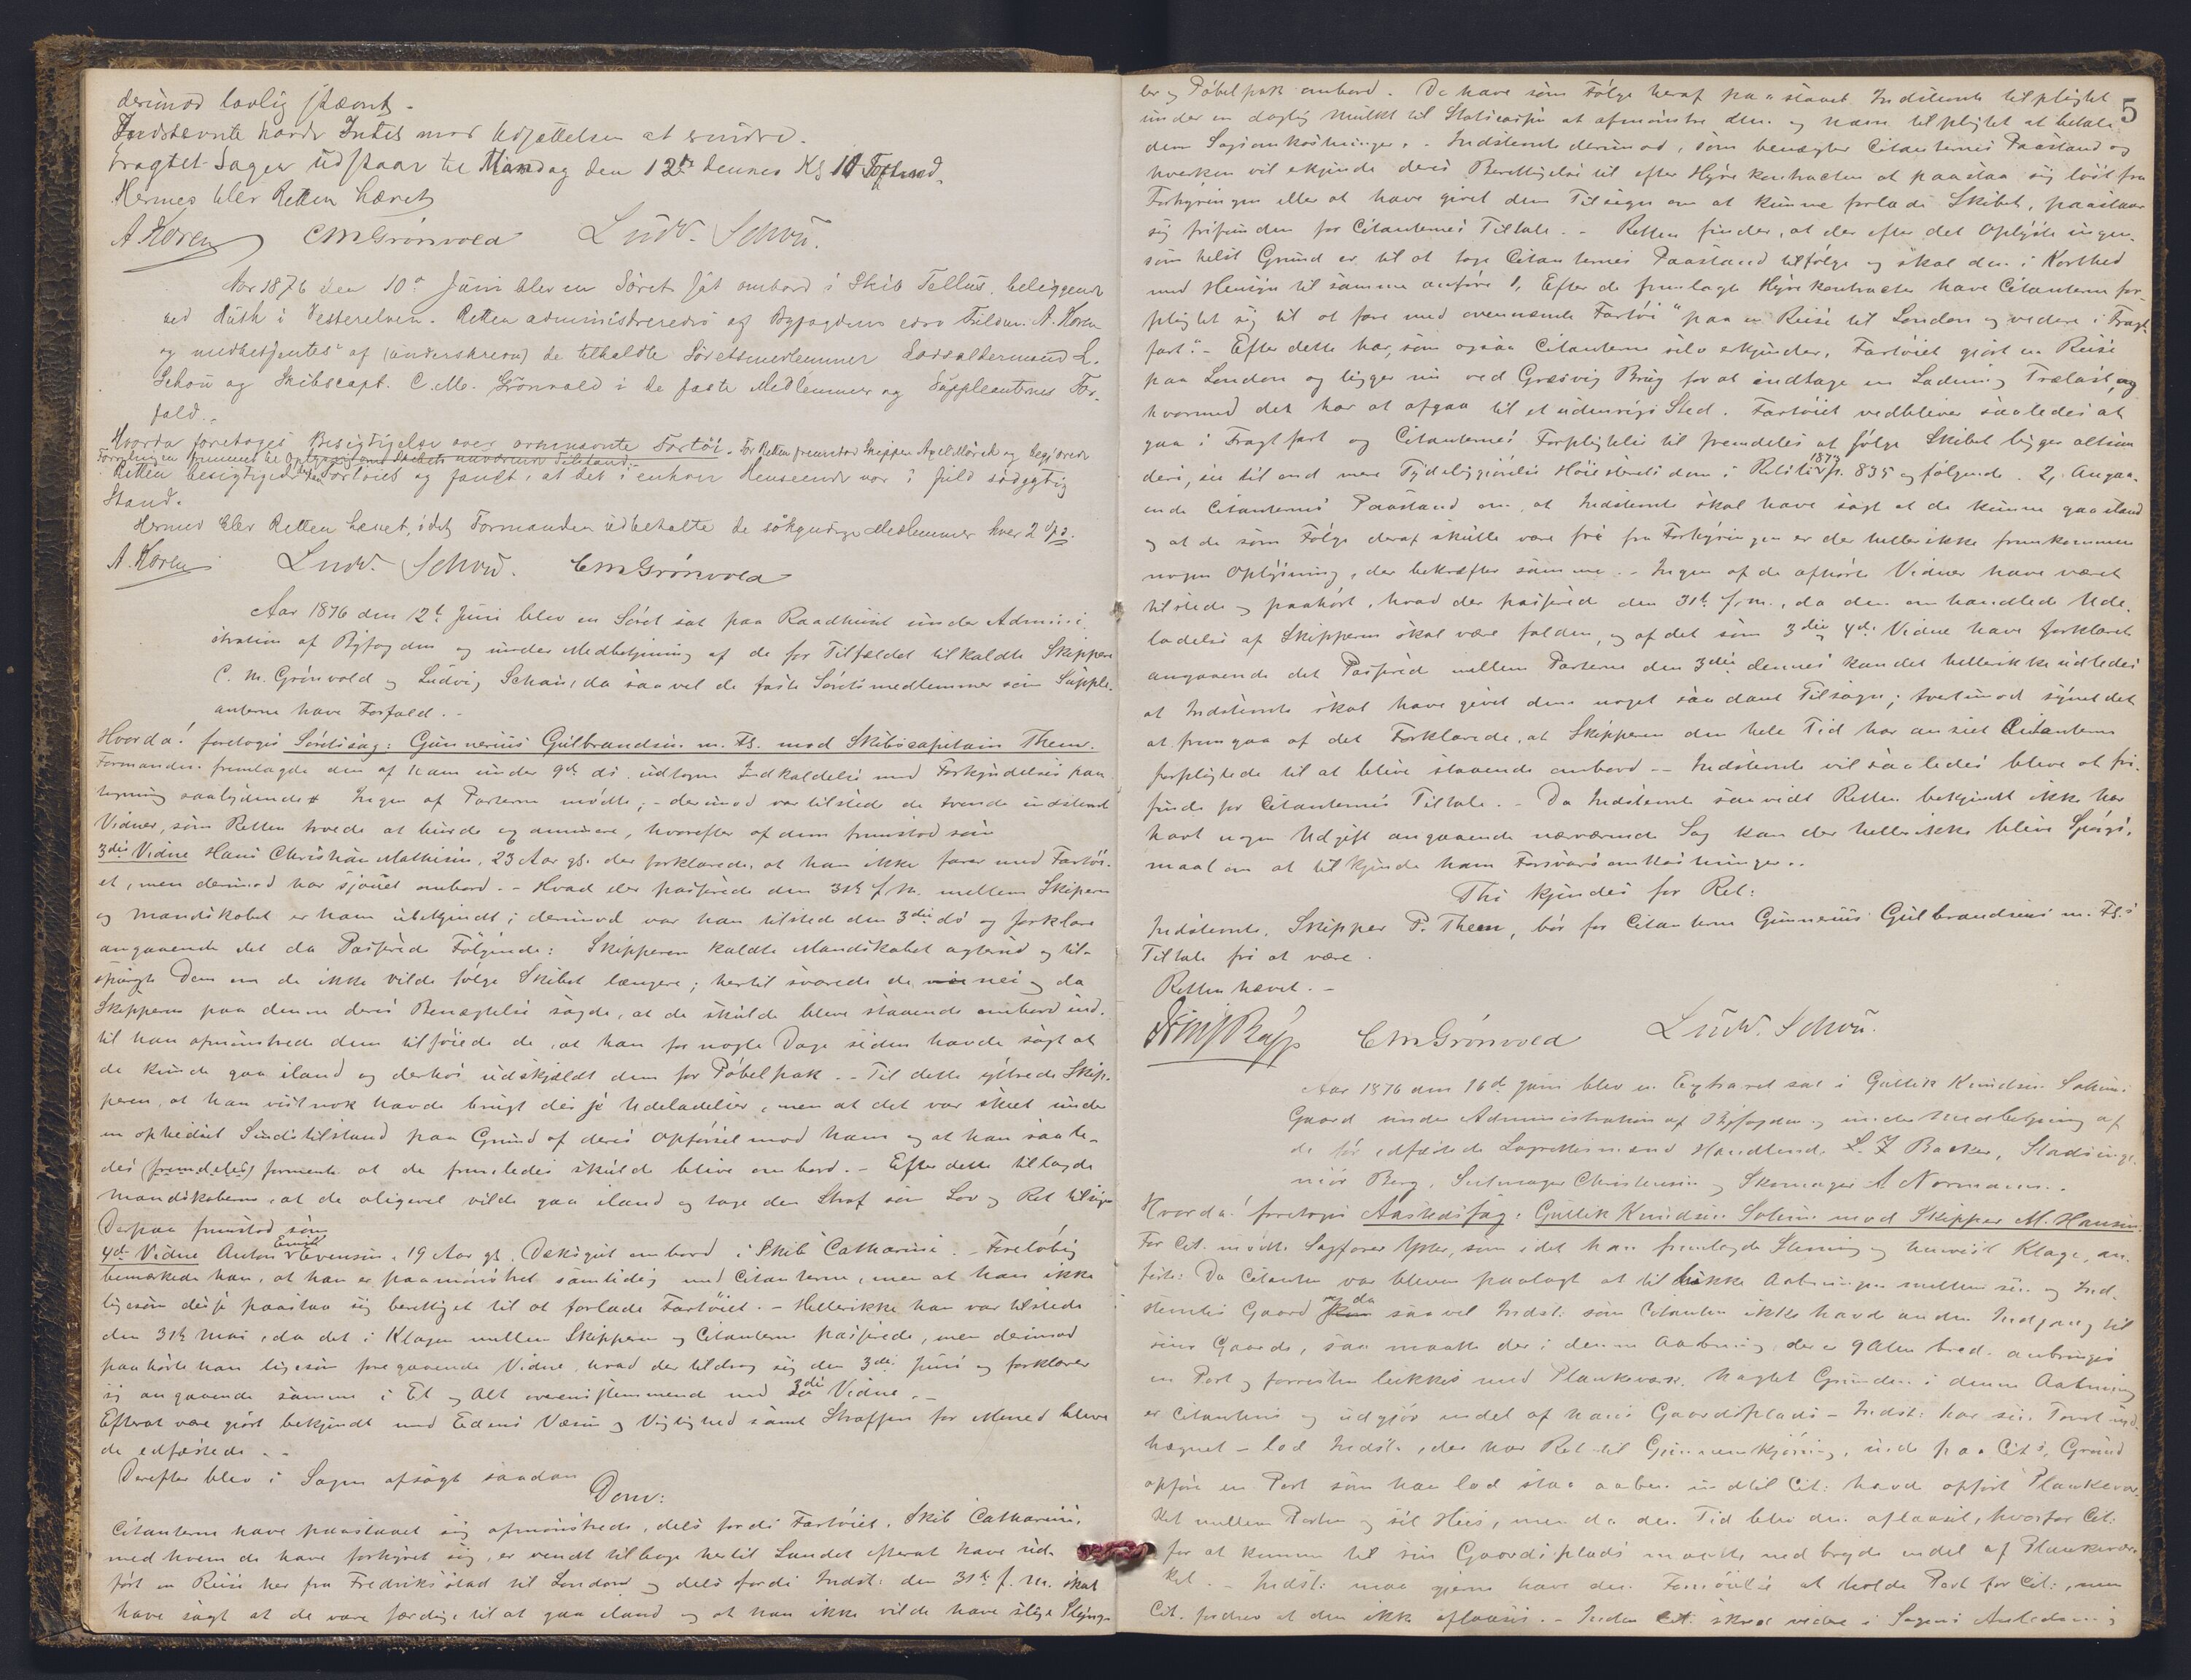 derimod lovlig stævnt.
Indstevnte havde Intet mod Udsettelsen at erindre.
Eragtet Sagen udstaar til Mandag den 12te dennes Kl 10 Formd.
Hermed blev Retten hævet
A Koren CMGrönvold Ludv. Schou.
Aar 1876 den 10de Juni blev en Söret sat ombord i Skib Tellus, beliggende
ved Rush i Vesterelven. Retten administreredes af Byfogdens edsv Fuldm. A. Koren
og medbetjentes af (underskrevne) de tilkaldte Söretsmedlemmer Lodsoldermand L.
Schou og Skibscapt. C. M. Grönvold i de faste Medlemmer og Suppleanternes For-
fald.
Hvorda foretoges Besigtigelse over ovennævnte Fartöi. For Retten fremstod Skipper Axel Mörck og begjærede
Forretningen fremmet til Oplysning om Skibets nuværende Tilstand.
Retten besigtigede den Fartöiet og fandt, at det i enhver Henseende var i fuld södygtig
Stand.
Hermed blev Retten hævet, idet Formanden udbetalte de sökyndige Medlemmer hver 2 Spd.
A. Koren Ludv. Schou. CMGrönvold
Aar 1876 den 12te Juni blev en Söret sat paa Raadhuset under Admini-
stration af Byfogden og under Medbetjening af de for Tilfældet tilkaldte Skippere
C. M. Grönvold og Ludvig Schou, da saavel de faste Söretsmedlemmer som Supple-
anterne have Forfald.-
Hvorda! foretoges Söretssag: Gunnerius Gulbrandsen m. Fl. mod Skibscapitain Theen.
Formanden fremlagde den af ham under 9de ds. udtagne Indkaldelse med Forkyndelses paa-
tegning saalydende# Ingen af Parterne mödte,- derimod var tilstede de tvende indstevnte
Vidner, som Retten troede at burde examinere, hvorefter af dem fremstod som
3die Vidne Hans Christian Mathisen, 23 Aar gl. der forklarede, at han ikke farer med Fartöi-
et, men derimod har sjouet ombord.- Hvad der passerede den 31te f. M. mellem Skipperen
og Mandskabet er ham ubekjendt; derimod var han tilstede den 3die ds og forklarer
angaaende det da Passerede Fölgende: Skipperen kaldte Mandskabet agterud og til-
spurgte Dem om de ikke vilde fölge Skibet længere; hertil svarede de nei og da
Skipperen paa denne deres Benægtelse sagde, at de skulde bleve staaende ombord ind-
til han afmönstrede dem tilföiede de, at han for nogle Dage siden havde sagt at
de kunde gaa iland og derhos udskjældt dem for Pöbelpak.- Til dette yttrede Skip-
peren, at han vistnok havde brugt disse Udeladelser, men at det var skeet under
en ophidset Sindstilstand paa Grund af deres Opförsel mod ham og at han saale-
des (fremdeles) formente at de fremdeles skulde blive ombord.- Efter dette tillagde
Mandskaberne, at de aligevel vilde gaa iland og tage den Straf som Lov og Ret tilsiger
Derpaa fremstod som
4de Vidne Anton Emil Evensen, 19 Aar gl. Dæksgut ombord i Skib Catharine.- Foreløbig
bemærkede han, at han er paamönstret samtidig med Citanterne, men at han ikke
ligesom disse paastaa sig berettiget til at forlade Fartöiet.- Hellerikke han var tilstede
den 31te Mai, da det i Klagen mellem Skipperen og Citanterne passerede, men derimod
paahörte han ligesom foregaaende Vidne, hvad der tildrog sig den 3die Juni og forklarer
sig angaaende samme i Et og Alt overensstemmende med 3die Vidne.-
Efterat være gjort bekjendt med Edens Væsen og Vigtighed samt Straffen for Mened bleve
de edfæstede.-
Derefter blev i Sagen afsagt saadan
Dom:
Citanterne have paastaaet sig afmönstrede, dels fordi Fartöiet, Skib Catharine,
med hvem de have forhyret sig, er vendt tilbage hertil Landet efterat have ud-
fört en Reise her fra Fredriksstad til London og dels fordi Indst: den 31te f. M. skal
have sagt at de være færdige til at gaa iland og at han ikke vilde have slige Slyng-
5
ler og Pöbelpak ombord. De have som Fölge heraf paastaaet Indstevnte tilpligtet
under en daglig Mulkt til Statscassen at afmönstre dem og være tilpligtet at betale
dem Sagsomkostninger.- Indstevnte derimod, som benægter Citanternes Paastand og
hverken vil erkjende deres Berettigelse til efter Hyrekontracten at paastaa sig löst fra
Forhyringen eller at have givet dem Tilsagn om at kunne forlade Skibet, paastaar
sig frifunden for Citanternes Tiltale.- Retten finder, at der efter det Oplyste ingen-
som helst Grund er til at tage Citanternes Paastand tilfölge og skal den i Korthed
med Hensyn til samme anföre 1, Efter de fremlagte Hyrekontracter have Citanterne for-
pligtet sig til at fare med ovennævnte Fartöi "paa en Reise til London og videre i Fragt-
fart".- Efter dette har, som ogsaa Citanterne selv erkjender, Fartöiet gjort en Reise
paa London og ligger nu ved Græsvig Brug for at indtage en Ladning Trælast, og
hvormed det har at afgaa til et udenrigs Sted. Fartöiet vedbliver saaledes at
gaa i Fragtfart og Citanternes Forpligtelse til fremdeles at fölge Skibet ligger altsaa
deri, see til end mere Tydeliggjörelse Höiesteretsdom i Retstid. 1874 p. 835 og fölgende. 2, Angaa-
ende Citanternes Paastand om, at Indstevnte skal have sagt at de kunne gaa iland
og at de som Fölge deraf skulle være fri fra Forhyringen er der hellerikke fremkommen
nogen Oplysning, der bekræfter samme.- Ingen af de afhörte Vidner have været
tilstede og paahört, hvad der passerede den 31te f.m., da den omhandlede Ude-
ladelse af Skipperen skal være falden, og af det som 3die og 4de Vidne have forklaret
angaaende det Passered mellem Parterne den 3die dennes kan det hellerikke udledes
at Indstevnte skal have givet dem noget saadant Tilsagn; tvertimod synes det
at fremgaa af det Forklarede, at Skipperen den hele Tid har anseet Citanterne
forpligtede til at blive staaende ombord.- Indstevnte vil saaledes blive at fri-
finde for Citanternes Tiltale.- Da Indstevnte saavidt Retten bekjendt ikke har
havt nogen Udgift angaaende nærværende Sag kan der hellerikke blive Spörgs-
maal om at tilkjende ham Forsvarsomkostninger.-
Thi kjendes for Ret:
Indstevnte, Skipper P. Theen, bör for Citanterne Gunnerius Gulbrandsens m. Fl.s
Tiltale fri at være.
Retten hævet.-
CMGrönvold Ludv. Schou.
Aar 1876 den 16de Juni blev en Extraret sat i Gullik Knudsen Solums
Gaard under Administration af Byfogden og under Medbetjening af
de för edfæstede Lagrettesmænd Handlende L. Z Backer, Stadsinge-
niör Berg, Seilmager Christensen og Skomager A Normann.-
Hvorda! foretoges Aastedssag: Gullik Knudsen Solum mod Skipper M. Hansen.
For Cit. mödte Sagförer, som idet han fremlagde Stevning og henviste Klage, an-
förte: Da Citanten var bleven paalagt at tillukke Aabningen mellem sin og Ind-
stevntes Gaard og da saavel Indst: som Citanten ikke havde anden Indgang til
sine Gaarde, saa maatte der i denne Aabning, der er 9 Alen bred, anbringes
en Port og forresten lukkes med Plankeværk. Uagtet Grunden i denne Aabning
er Citantens og udgjör endel af hans Gaardsplads - Indst: har sin Tomt ind-
hægnet - lod Indst:, der har Ret til Gjennemkjöring, inde paa Cits, Grund
opföre en Port som han lod staa aaben indtil Cit: havde opfört Plankevær-
ket mellem Porten og sit Huus, men da den Tid blev den aflaaset, hvorfor Cit:
for at komme til sin Gaardsplads maatte nedbryde endel af Plankevær-
ket.- Indst: maa gjerne have den Fornöielse at holde Port for Cit:, men
Cit. fordrer at den ikke aflaases.- Inden Cit. skred videre i Sagens Anledning